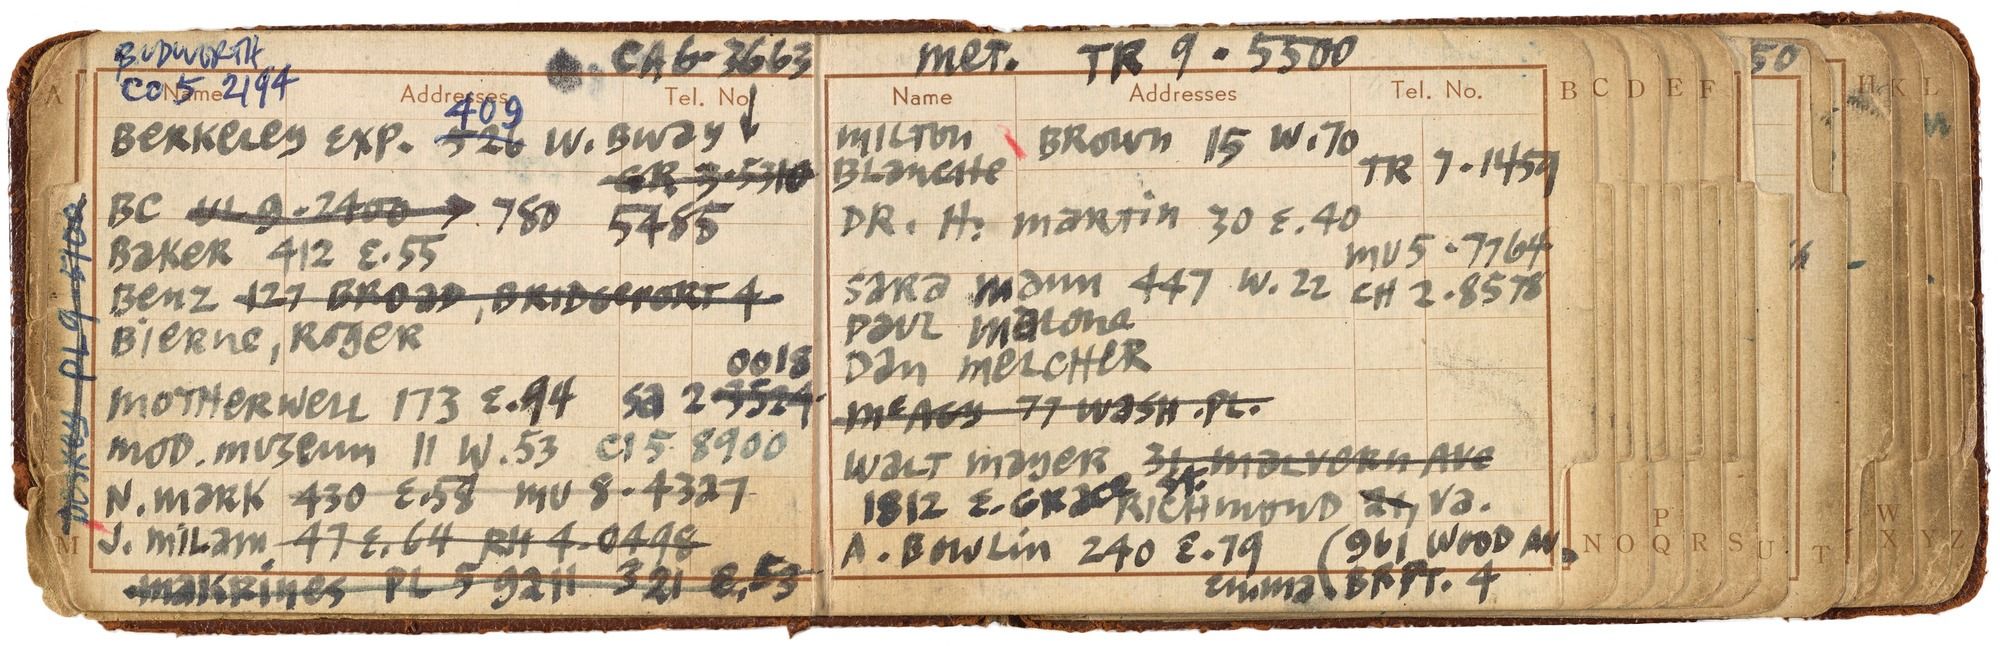 BUDWORTH
CO 5 2194
CA 6-3663
Name Addresses Tel. No.
409
BERKELEY EXP. 526 W. BWAY
GR 3-5310
BC 9-2400 → 780 5485
BAKER 412 E.55
BENZ 127 BROAD, BRIDGEPORT 4
BIERNE, ROGER
0018
MOTHERWELL 173 E.94 SA 2
MOD. MUZEUM 11 W.53 CI 5 8900
N. MARK 430 E.58 MU 8-4327
J. MILAM 47 E.64 RH 4-0498
MAKRINES PL 5 9211 321 E.53
DESKEY PL 9
A
M
MET. TR 9-5500
Name Addresses Tel. No.
MILTON BROWN 15 W.70
BLANCHE TR 7-1459
DR. H. MARTIN 30 E.40
MU 5-7764
SARA MANN 447 W.22 CH 2-8578
PAUL MALONE
DAN MELCHER
MCAGY 77 WASH. PL.
WALT MAYER 31 MALVERN AVE
1812 E. GRACE ST. RICHMOND 21, VA.
A. BOWLIN 240 E.79 (961 WOOD AV.
EMMA (BRPT. 4
50
B C D E F H K L
N O P Q R S U T W X Y Z